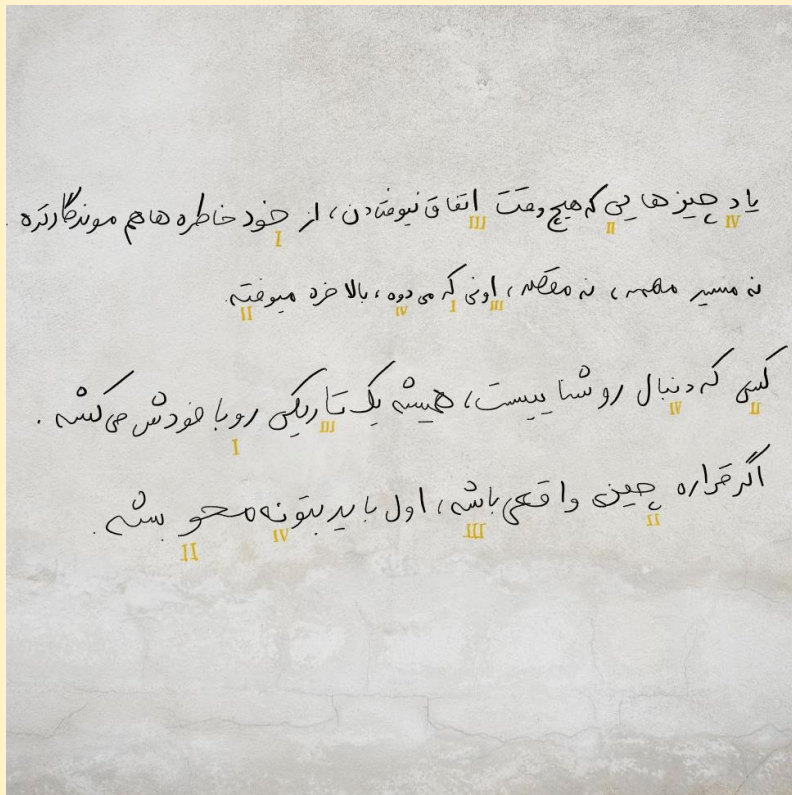 یاد چیزهایی که هیچ وقت اتفاق نیوفتادن، از خود خاطره ها هم موندگارتره.
IV II III I
نه مسیر مهمه، نه مقصد، اونی که می دوه، بالاخره میوفته.
III I IV II
کسی که دنبال روشناییست، همیشه یک تاریکی رو با خودش می کشه.
II IV III I
اگر قراره چیزی واقعی باشه، اول باید بتونه محو بشه.
II III IV II